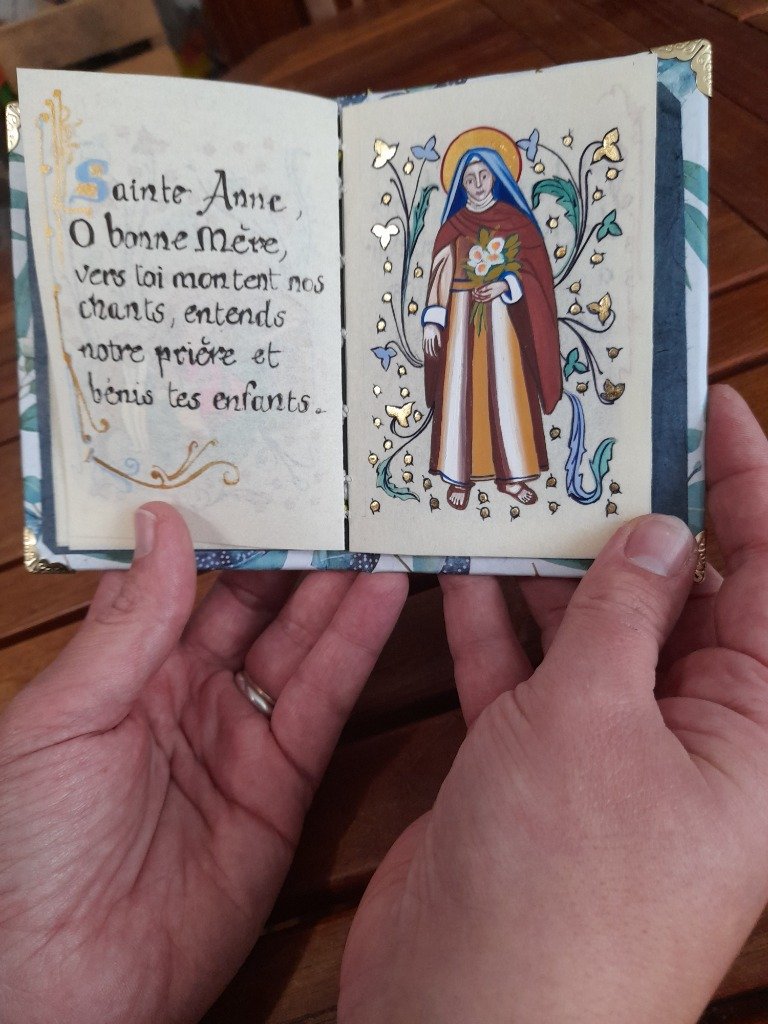 Sainte Anne,
O bonne Mère,
vers toi montent nos
chants, entends
notre prière et
bénis tes enfants.